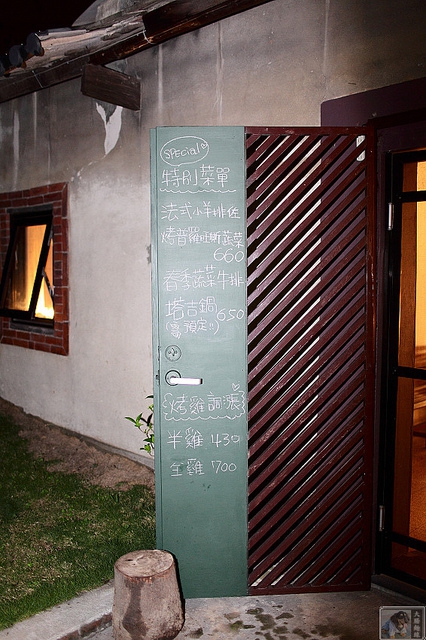 SPECial
特別菜單
法式小羊排佐
烤普羅旺斯蔬菜
660
春季蔬菜牛排
塔吉鍋 650
(需預定!!)
烤雞調漲
半雞 430
全雞 700